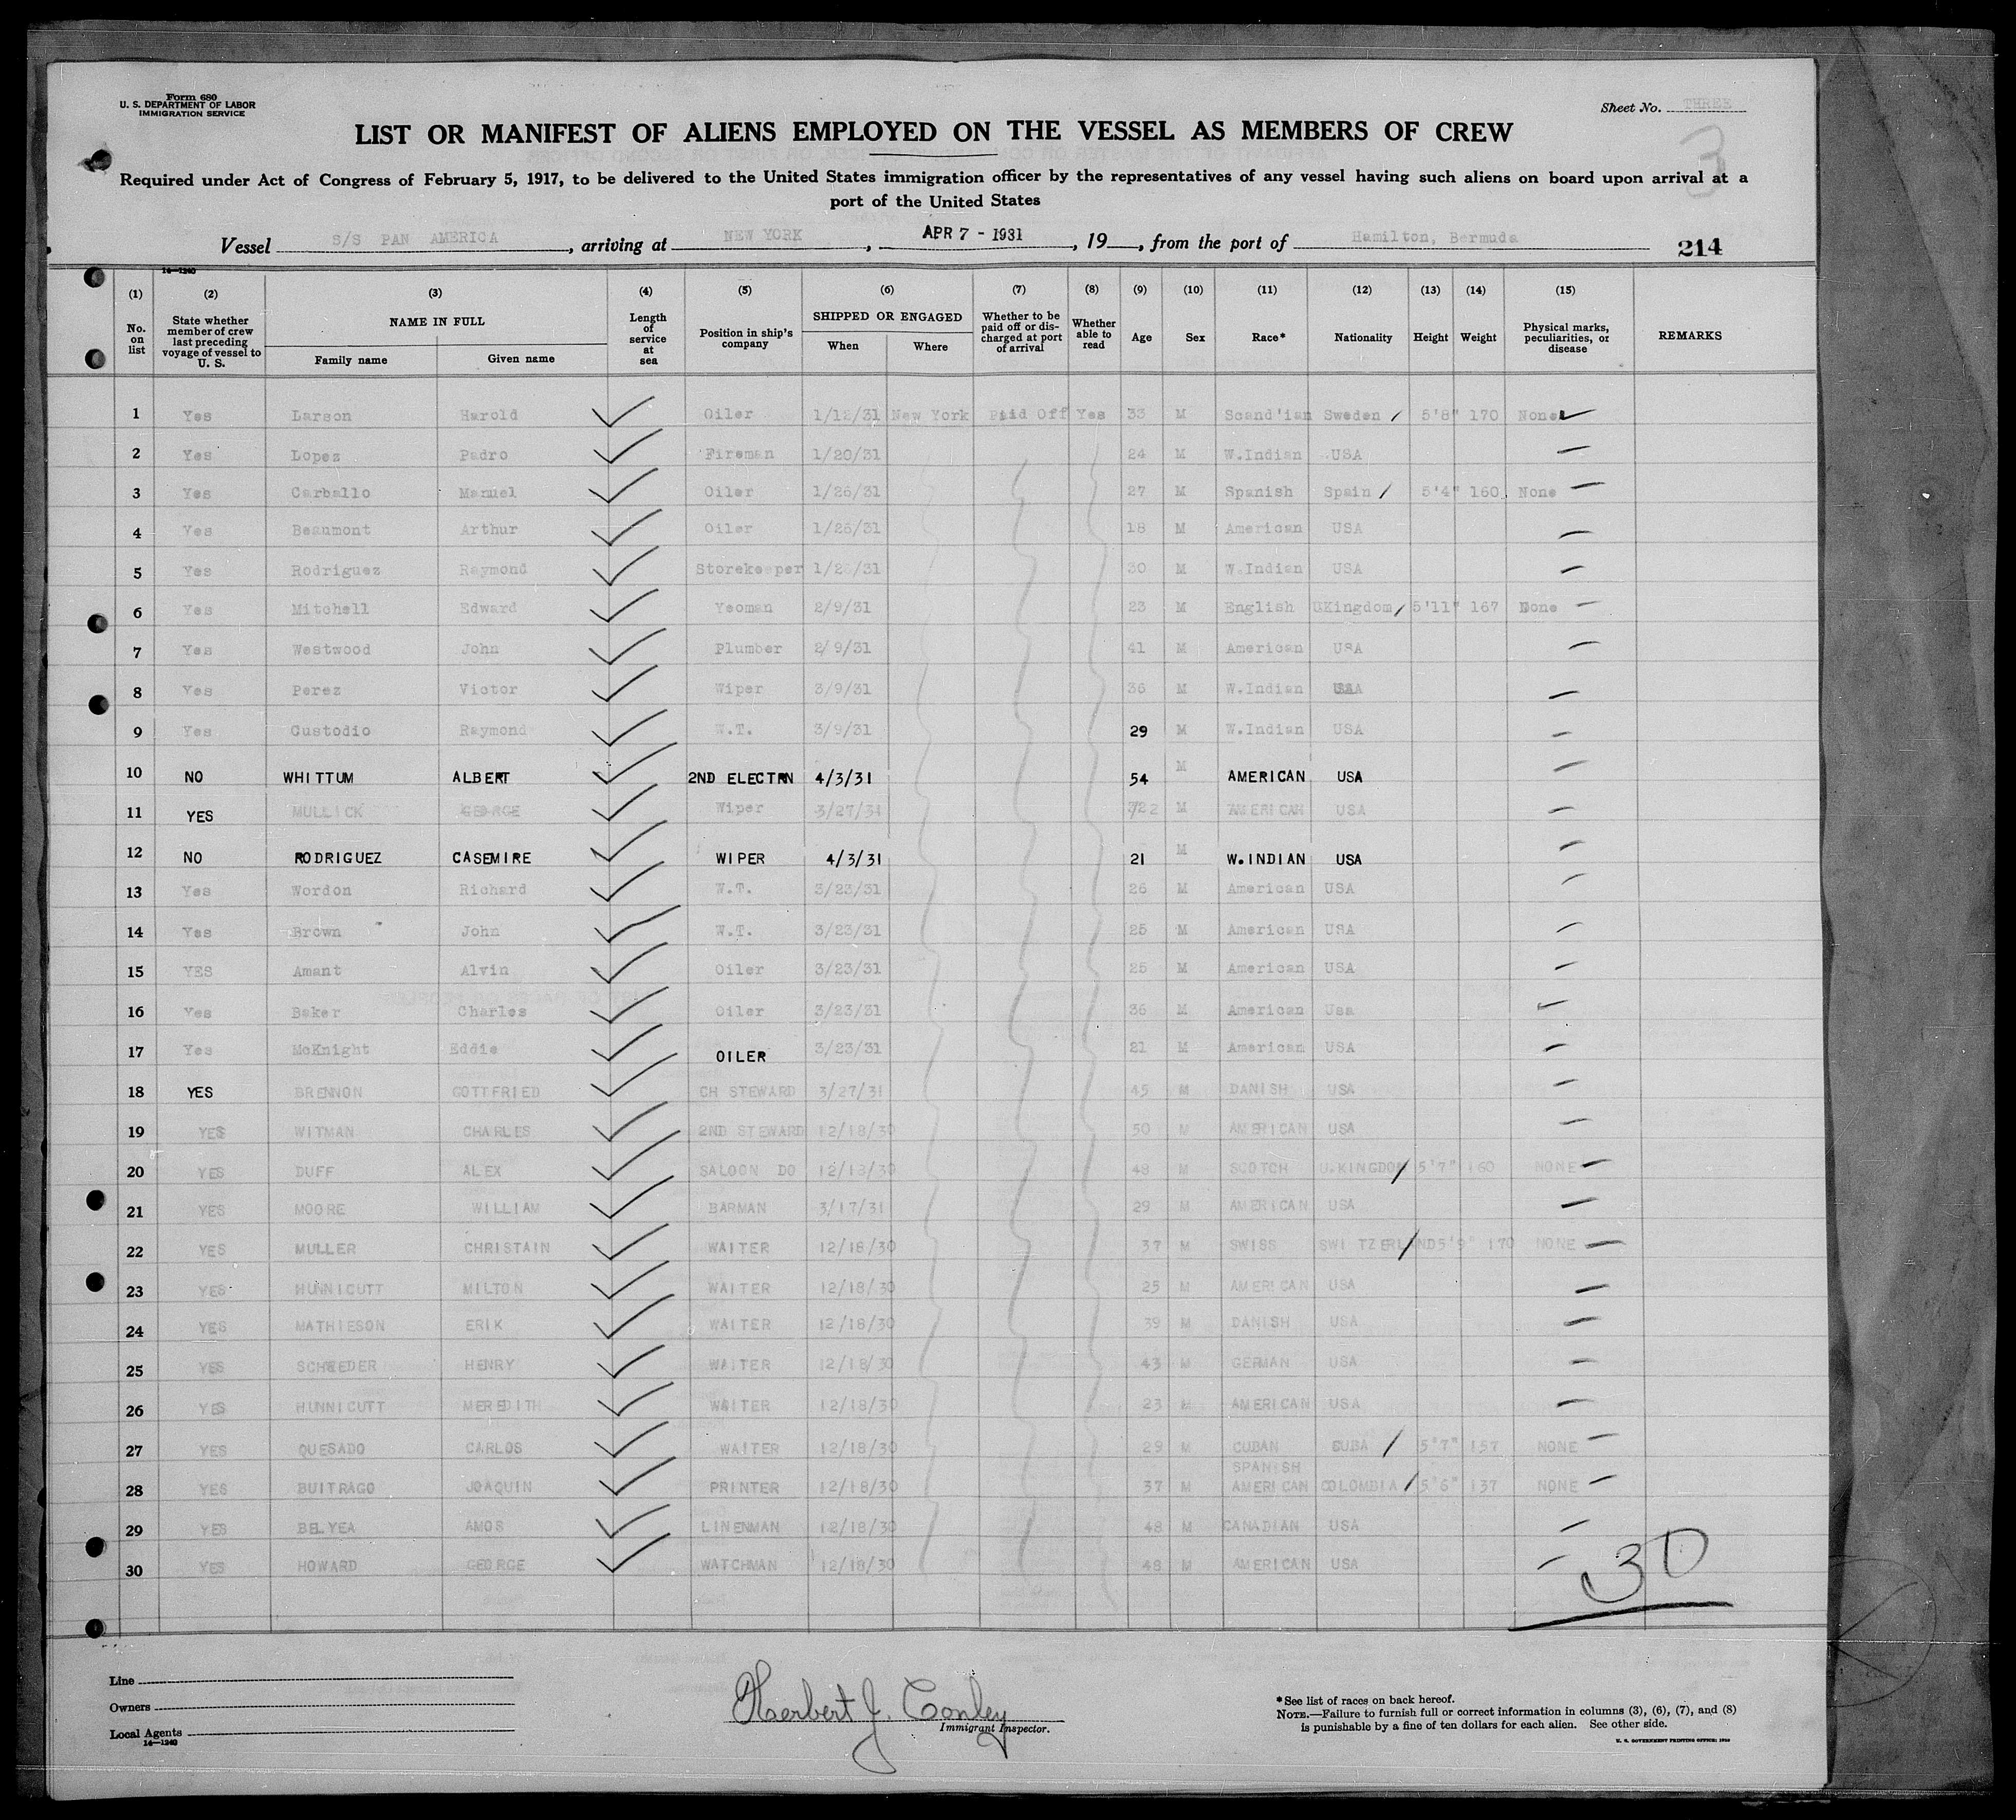 Form 680
U. S. DEPARTMENT OF LABOR
IMMIGRATION SERVICE
Sheet No. THREE
3
LIST OR MANIFEST OF ALIENS EMPLOYED ON THE VESSEL AS MEMBERS OF CREW
Required under Act of Congress of February 5, 1917, to be delivered to the United States immigration officer by the representatives of any vessel having such aliens on board upon arrival at a
port of the United States
Vessel S/S PAN AMERICA, arriving at NEW YORK, APR 7 - 1931, 19, from the port of Hamilton, Bermuda 214
14—1240
(1) (2) (3) (4) (5) (6) (7) (8) (9) (10) (11) (12) (13) (14) (15)
No. on list State whether member of crew last preceding voyage of vessel to U. S. NAME IN FULL Family name Given name Length of service at sea Position in ship's company SHIPPED OR ENGAGED When Where Whether to be paid off or discharged at port of arrival Whether able to read Age Sex Race* Nationality Height Weight Physical marks, peculiarities, or disease REMARKS
1 Yes Larson Harold Oiler 1/12/31 New York Paid Off Yes 33 M Scand'ian Sweden 5'8" 170 None
2 Yes Lopez Padro Fireman 1/20/31 24 M W.Indian USA
3 Yes Carballo Manuel Oiler 1/26/31 27 M Spanish Spain 5'4" 160 None
4 Yes Beaumont Arthur Oiler 1/26/31 18 M American USA
5 Yes Rodriguez Raymond Storekeeper 30 M W.Indian USA
6 Yes Mitchell Edward Yeoman 2/9/31 23 M English UKingdom 5'11" 167 None
7 Yes Westwood John Plumber 2/9/31 41 M American USA
8 Yes Perez Victor Wiper 3/9/31 36 M W.Indian USA
9 Yes Custodio Raymond W.T. 3/9/31 29 M W.Indian USA
10 NO WHITTUM ALBERT 2ND ELECTRN 4/3/31 54 M AMERICAN USA
11 YES MULLICK GEORGE Wiper 3/27/31 M AMERICAN USA
12 NO RODRIGUEZ CASEMIRE WIPER 4/3/31 21 M W.INDIAN USA
13 Yes Wordon Richard W.T. 3/23/31 26 M American USA
14 Yes Brown John W.T. 3/23/31 25 M American USA
15 YES Amant Alvin Oiler 3/23/31 25 M American USA
16 Yes Baker Charles Oiler 3/23/31 36 M American Usa
17 Yes McKnight Eddie OILER 3/23/31 21 M American USA
18 YES BRENNON GOTTFRIED CH STEWARD 3/27/31 45 M DANISH USA
19 YES WITMAN CHARLES 2ND STEWARD 12/18/30 50 M AMERICAN USA
20 YES DUFF ALEX SALOON DO 12/18/30 48 M SCOTCH U.KINGDOM 5'7" 160 NONE
21 YES MOORE WILLIAM BARMAN 3/17/31 29 M AMERICAN USA
22 YES MULLER CHRISTAIN WAITER 12/18/30 37 M SWISS SWITZERLAND 5'9" 170 NONE
23 YES HUNNICUTT MILTON WAITER 12/18/30 25 M AMERICAN USA
24 YES MATHIESON ERIK WAITER 12/18/30 39 M DANISH USA
25 YES SCHREDER HENRY WAITER 12/18/30 43 M GERMAN USA
26 YES HUNNICUTT MEREDITH WAITER 12/18/30 23 M AMERICAN USA
27 YES QUESADO CARLOS WAITER 12/18/30 29 M CUBAN CUBA 5'7" 157 NONE
28 YES BUITRAGO JOAQUIN PRINTER 12/18/30 37 M SPANISH AMERICAN COLOMBIA 5'6" 137 NONE
29 YES BELYEA AMOS LINENMAN 12/18/30 48 M CANADIAN USA
30 YES HOWARD GEORGE WATCHMAN 12/18/30 48 M AMERICAN USA
30
Line
Owners
Local Agents
14—1240
Herbert J. Conley
Immigrant Inspector.
*See list of races on back hereof.
NOTE.—Failure to furnish full or correct information in columns (3), (6), (7), and (8)
is punishable by a fine of ten dollars for each alien. See other side.
U. S. GOVERNMENT PRINTING OFFICE: 1930